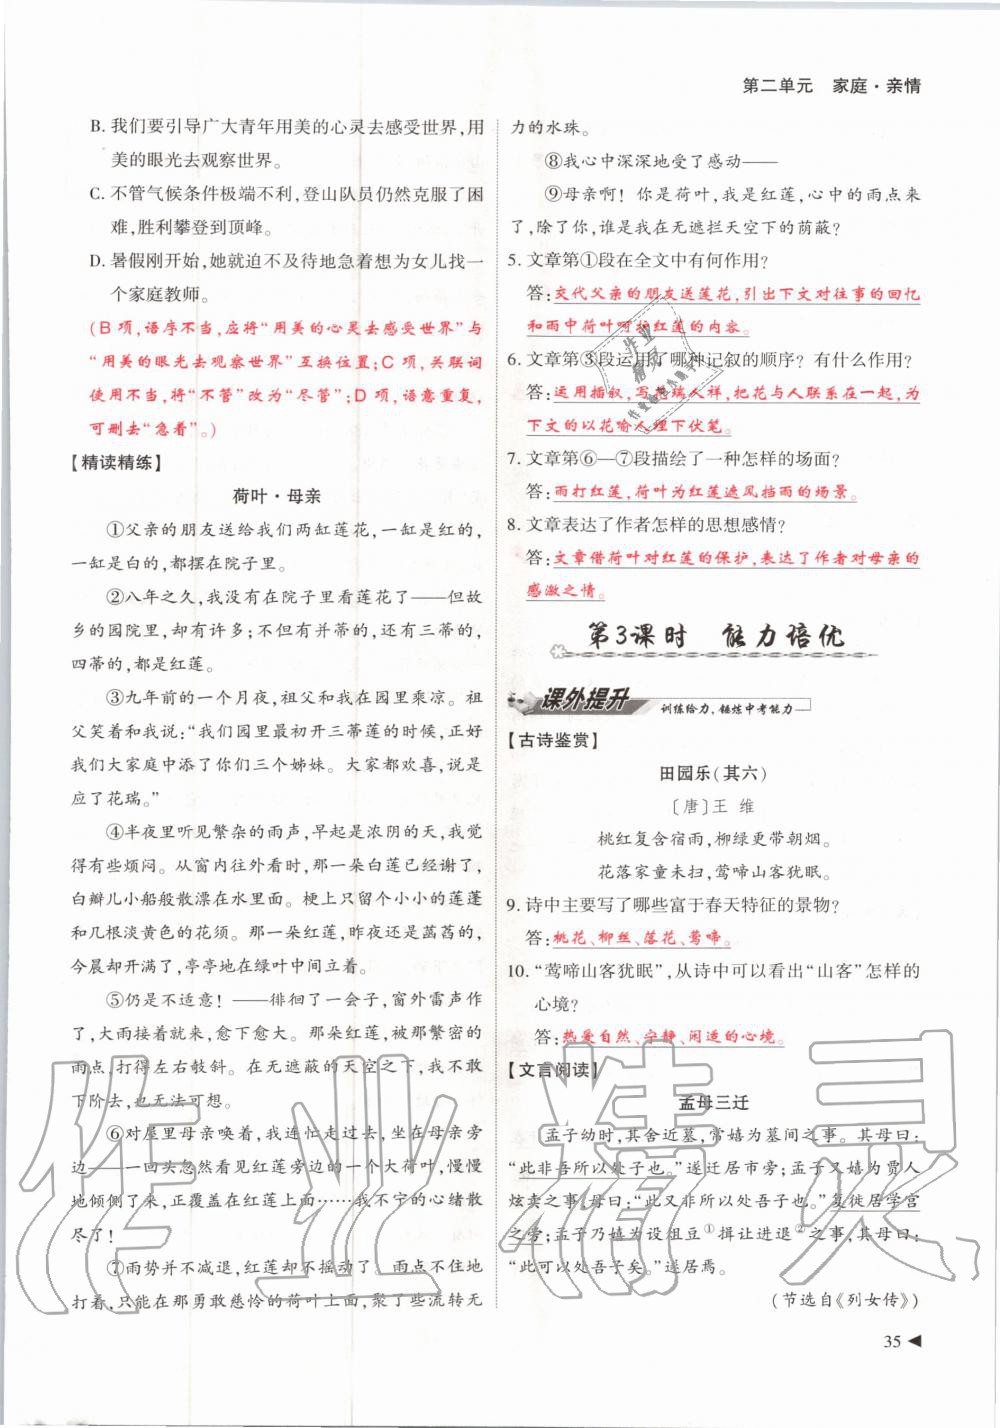 第二单元　家庭·亲情
B. 我们要引导广大青年用美的心灵去感受世界,用
美的眼光去观察世界。
C. 不管气候条件极端不利,登山队员仍然克服了困
难,胜利攀登到顶峰。
D. 暑假刚开始,她就迫不及待地急着想为女儿找一
个家庭教师。
(B 项,语序不当,应将“用美的心灵去感受世界”与
“用美的眼光去观察世界”互换位置;C 项,关联词
使用不当,将“不管”改为“尽管”;D 项,语意重复,
可删去“急着”。)
【精读精练】
荷叶·母亲
①父亲的朋友送给我们两缸莲花,一缸是红的,
一缸是白的,都摆在院子里。
②八年之久,我没有在院子里看莲花了——但故
乡的园院里,却有许多;不但有并蒂的,还有三蒂的,
四蒂的,都是红莲。
③九年前的一个月夜,祖父和我在园里乘凉。祖
父笑着和我说:“我们园里最初开三蒂莲的时候,正好
我们大家庭中添了你们三个姊妹。大家都欢喜,说是
应了花瑞。”
④半夜里听见繁杂的雨声,早起是浓阴的天,我觉
得有些烦闷。从窗内往外看时,那一朵白莲已经谢了,
白瓣儿小船般散漂在水里面。梗上只留个小小的莲蓬
和几根淡黄色的花须。那一朵红莲,昨夜还是菡萏的,
今晨却开满了,亭亭地在绿叶中间立着。
⑤仍是不适意!——徘徊了一会子,窗外雷声作
了,大雨接着就来,愈下愈大。那朵红莲,被那繁密的
雨点,打得左右敧斜。在无遮蔽的天空之下,我不敢
下阶去,也无法可想。
⑥对屋里母亲唤着,我连忙走过去,坐在母亲旁
边——一回头忽然看见红莲旁边的一个大荷叶,慢慢
地倾侧了来,正覆盖在红莲上面……我不宁的心绪散
尽了!
⑦雨势并不减退,红莲却不摇动了。雨点不住地
打着,只能在那勇敢慈怜的荷叶上面,聚了些流转无
力的水珠。
⑧我心中深深地受了感动——
⑨母亲啊!你是荷叶,我是红莲,心中的雨点来
了,除了你,谁是我在无遮拦天空下的荫蔽?
5. 文章第①段在全文中有何作用?
答:交代父亲的朋友送莲花,引出下文对往事的回忆
和雨中荷叶呵护红莲的内容。
6. 文章第③段运用了哪种记叙的顺序?有什么作用?
答:运用插叙,写莲瑞人祥,把花与人联系在一起,为
下文的以花喻人埋下伏笔。
7. 文章第⑥—⑦段描绘了一种怎样的场面?
答:雨打红莲,荷叶为红莲遮风挡雨的场景。
8. 文章表达了作者怎样的思想感情?
答:文章借荷叶对红莲的保护,表达了作者对母亲的
感激之情。
第3课时　能力培优
课外提升　训练给力,锤炼中考能力
【古诗鉴赏】
田园乐(其六)
〔唐〕王　维
桃红复含宿雨,柳绿更带朝烟。
花落家童未扫,莺啼山客犹眠。
9. 诗中主要写了哪些富于春天特征的景物?
答:桃花、柳丝、落花、莺啼。
10. “莺啼山客犹眠”,从诗中可以看出“山客”怎样的
心境?
答:热爱自然、宁静、闲适的心境。
【文言阅读】
孟母三迁
孟子幼时,其舍近墓,常嬉为墓间之事。其母曰:
“此非吾所以处子也。”遂迁居市旁;孟子又嬉为贾人
炫卖之事,母曰:“此又非所以处吾子也。”复徙居学宫
之旁;孟子乃嬉为设俎豆①揖让进退②之事,其母曰:
“此可以处吾子矣。”遂居焉。
(节选自《列女传》)
35
作业精灵